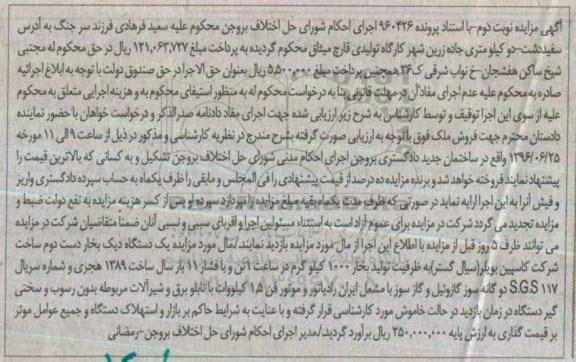 آگهی مزایده نوبت دوم-با استناد پرونده ۹۶۰۴۲۶ اجرای احکام شورای حل اختلاف بروجن محکوم علیه سعید فرهادی فرزند سر جنگ به آدرس
سفیددشت-دو کیلو متری جاده زرین شهر کارگاه تولیدی قارچ میثاق محکوم گردیده به پرداخت مبلغ ۱۲۱,۰۶۳,۷۲۷ ریال در حق محکوم له مجتبی
شیخ ساکن هفشجان-خ نواب شرقی ک۳۶ همچنین پرداخت مبلغ ۵,۵۰۰,۰۰۰ ریال بعنوان حق الاجرا در حق صندوق دولت با توجه به ابلاغ اجرائیه
صادره به محکوم علیه عدم اجرای مفاد آن در مهلت قانونی بنا به درخواست محکوم له به منظور استیفای محکوم به و هزینه اجرایی متعلق به محکوم
علیه از سوی این اجرا توقیف و توسط کارشناس به شرح زیر ارزیابی شده جهت اجرای مفاد دادنامه صدرالذکر و درخواست خواهان با حضور نماینده
دادستان محترم جهت فروش ملک فوق با توجه به ارزیابی صورت گرفته بشرح مندرج در نظریه کارشناسی و مذکور در ذیل از ساعت ۹ الی ۱۱ مورخه
۱۳۹۶/۰۶/۲۵ واقع در ساختمان جدید دادگستری بروجن اجرای احکام مدنی شورای حل اختلاف بروجن تشکیل و به کسانی که بالاترین قیمت را
پیشنهاد نمایند فروخته خواهد شد و برنده مزایده ده درصد از قیمت پیشنهادی را فی المجلس و مابقی را ظرف یکماه به حساب سپرده دادگستری واریز
و فیش آنرا به این اجرا ارایه نماید در صورتی که ظرف مدت یکماه بقیه مبلغ مزایده را نپردازد سپرده او پس از کسر هزینه مزایده به نفع دولت ضبط و
مزایده تجدید می گردد شرکت در مزایده برای عموم آزاد است به استثناء مسئولین اجرا و اقربای سببی و نسبی آنان ضمنا متقاضیان شرکت در مزایده
می توانند ظرف ۵ روز قبل از مزایده با اطلاع این اجرا از مال مورد مزایده بازدید نمایند/مال مورد مزایده یک دستگاه دیک بخار دست دوم ساخت
شرکت کاسپین بویلر(سیال گستر)به ظرفیت تولید بخار ۱۰۰۰ کیلو گرم در ساعت ۱ تن و با فشار ۱۱ بار سال ساخت ۱۳۸۹ هجری و شماره سریال
S.G.S ۱۱۷ دو گانه سوز گازوئیل و گاز سوز با مشعل ایران رادیاتور و موتور فن ۱,۵ کیلووات با تابلو برق و شیرآلات مربوطه بدون رسوب و سختی
گیر دستگاه در زمان بازدید در حالت خاموش مورد کارشناسی قرار گرفته و با عنایت به شرایط حاکم بر بازار و استهلاک دستگاه و جمیع عوامل موثر
بر قیمت گذاری به ارزش پایه ۲۵۰,۰۰۰,۰۰۰ ریال برآورد گردید/مدیر اجرای احکام شورای حل اختلاف بروجن-رمضانی